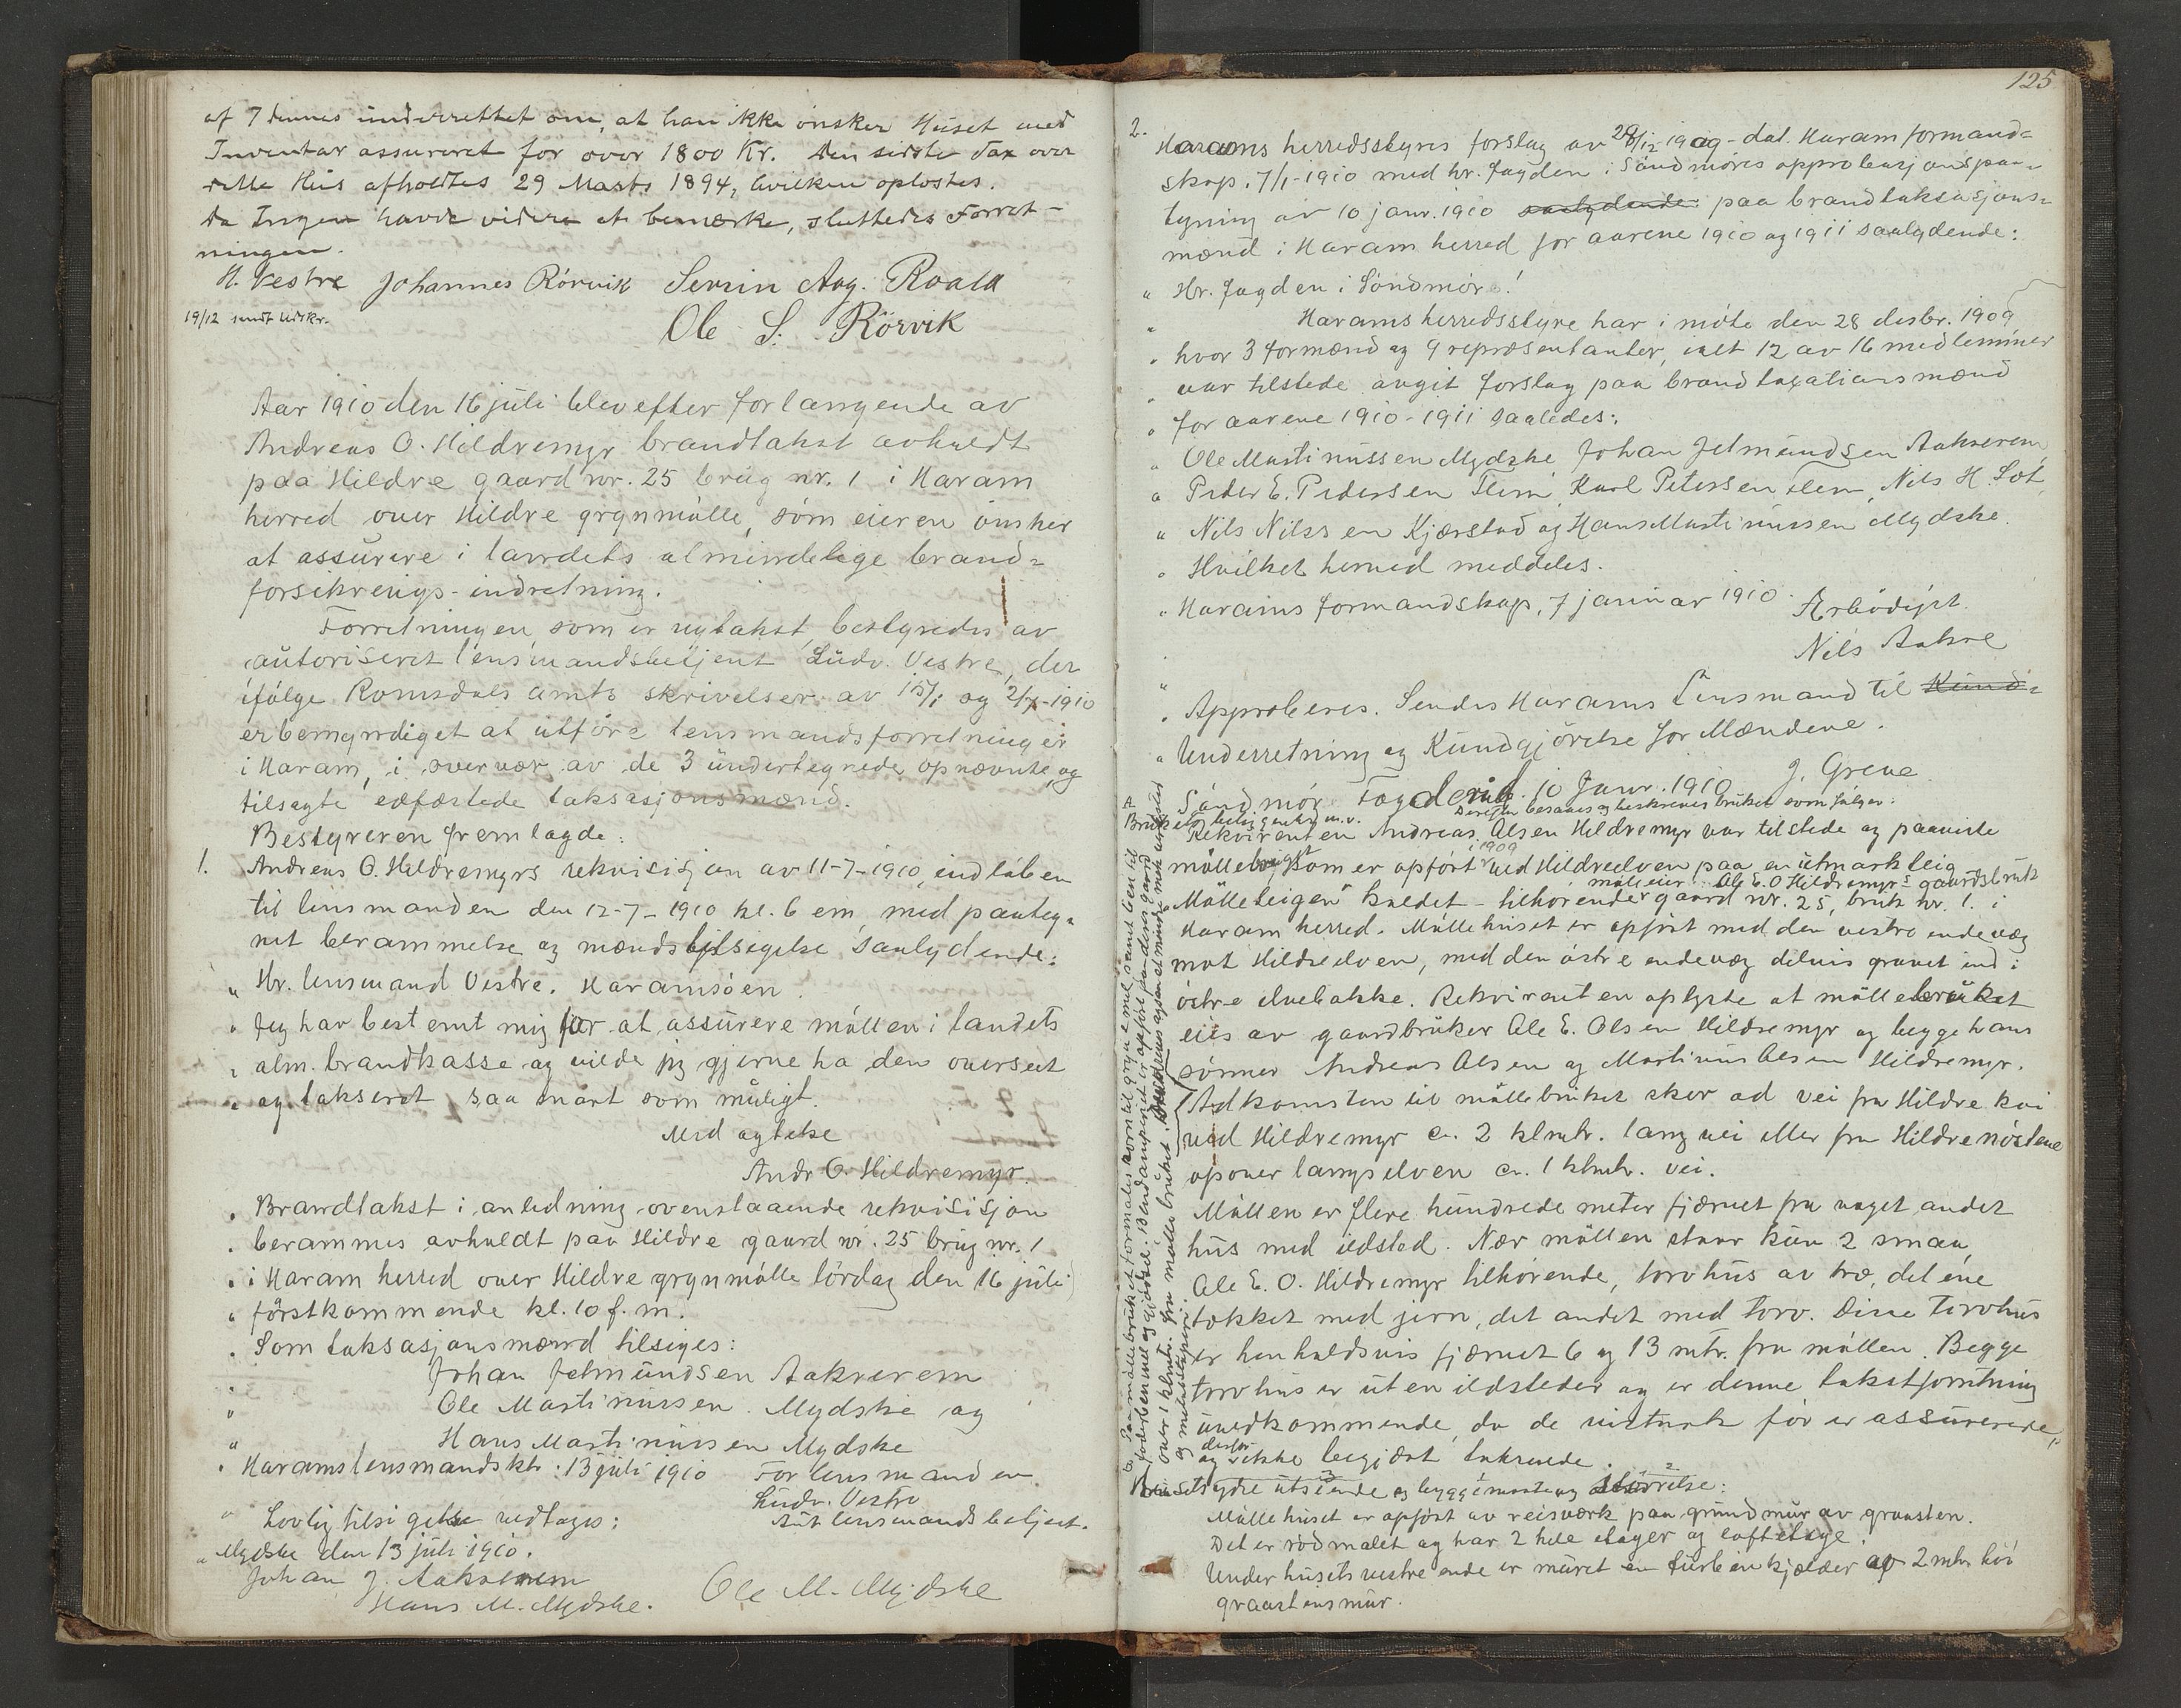 af 7 dennes underrettet om, at han ikke ønsker Huset med
Inventar assureret for over 1800 Kr. Den sidste Tax over
dette Hus afholdtes 29 Marts 1894, hvilken oplæstes.
Da Ingen havde videre at bemærke, sluttedes Forret-
ningen.
H. Vestre Johannes Rörvik Sevrin Aug. Roald
19/12 sendt Udskr.
Ole S. Rörvik
Aar 1910 den 16 juli blev efter forlangende av
Andreas O. Hildremyr brandtakst avholdt
paa Hildre gaard nr. 25 brug nr. 1 i Haram
herred over Hildre grynmølle, som eieren ønsker
at assurere i landets almindelige brand=
forsikrings-indretning.
Forretningen, som er nytakst, bestyredes av
autoriseret lensmandsbetjent Ludv. Vestre, der
ifølge Romsdals amts skrivelser av 15/1 og 2/7-1910
er bemyndiget at utføre lensmandsforretninger
i Haram, i overvær av de 3 undertegnede opnævnte og
tilsagte edfæstede taksasjonsmænd.
Bestyreren fremlagde:
1. Andreas O. Hildremyrs rekvisisjon av 11-7-1910, indløben
til lensmanden den 12-7-1910 kl. 6 em, med paateg=
net berammelse og mændstilsigelse saalydende:
" Hr. lensmand Vestre. Haramsøen.
" Jeg har bestemt mig for at assurere møllen i landets
" alm. brandkasse og vilde jeg gjerne ha den overseet
" og taksert saa snart som muligt.
Med agtelse
Andr O. Hildremyr.
" Brandtakst i anledning ovenstaaende rekvisisjon
" berammes avholdt paa Hildre gaard nr. 25 brug nr. 1
" i Haram herred over Hildre grynmølle lørdag den 16 juli
" førstkommende kl. 10 f.m.
" Som taksasjonsmænd tilsiges:
" Johan Jetmundsen Aakrerem
" Ole Martinussen Mydske og
" Hans Martinussen Mydske
" Harams lensmandsktr. 13 juli 1910 For lensmanden
Ludv. Vestre
" Lovlig tilsigelse vedtages: Aut lensmandsbetjent.
" Mydske den 13 juli 1910.
Johan J. Aakrerem
Hans M. Mydske. Ole M. Mydske
125
2. Harams herredsstyres forslag av 28/12 1909 - dat. Haram formand=
skap. 7/1-1910 med hr. fogden i Søndmøres approbasjonspaa=
tegning av 10 janr. 1910 saalydende: paa brandtaksasjons=
mænd i Haram herred for aarene 1910 og 1911 saalydende:
" Hr. fogden i Söndmör!
" Harams herredsstyre har i møte den 28 desbr. 1909
" hvor 3 formænd og 9 repræsentanter, ialt 12 av 16 medlemmer
" var tilstede avgit forslag paa brandtaxationsmænd
" for aarene 1910-1911 saaledes:
" Ole Martinussen Mydske, Johan Jetmundsen Aakrerem,
" Peder E. Pedersen Flem, Karl Petersen Flem, Nils H. Løt,
" Nils Nilssen Kjærstad og Hans Martinussen Mydske.
" Hvilket herved meddeles.
" Harams formandskap, 7 januar 1910. Ærbödigst
Nils Aakre
" Approberes. Sendes Harams Lensmand til Kund=
" Underretning og Kundgjörelse for Mændene.
" Söndmör Fogderi 10 Janr. 1910 J. Greve.
A. Brukets beliggenhed m.v. Derefter besaaes og beskreves bruket som følger:
Rekvirenten Andreas Olsen Hildremyr var tilstede og paaviste
møllebruket som er opført i 1909 ved Hildreelven paa en utmarkteig
mølleeier Ole E. O Hildremyr's gaardsbruk
"Mølleteigen" kaldet - tilhørende gaard nr. 25, bruk nr. 1. i
Haram herred. Møllehuset er opført med den vestre endevæg
mot Hildreelven, med den østre endevæg delvis gravet ind i
østre elvebakke. Rekvirenten oplyste at møllebruket
eies av gaardbruker Ole E. Olsen Hildremyr og begge hans
sønner Andreas Olsen og Martinus Olsen Hildremyr.
Adkomsten til møllebruket sker ad vei fra Hildre kai
ved Hildremyr ca. 2 klmtr. lang vei eller fra Hildrenøstene
opover langs elven ca. 1 klmtr. vei.
Møllen er flere hundrede meter fjernet fra noget andet
hus med ildsted. Nær møllen staar kun 2 smaa,
Ole E. O. Hildremyr tilhørende, torvhus av træ, det ene
tækket med jern, det andet med torv. Disse torvhus
er henholdsvis fjernet 6 og 13 mtr. fra møllen. Begge
torvhus er uten ildsteder og er denne takstforretning
uvedkommende, da de vistnok før er assurerede,
og derfor ikke begjært takserede.
Husets ydre utseende og byggemaate og størrelse:
Møllehuset er opført av reisværk paa grundmur av graasten.
Det er rødmalet og har 2 hele etager og loftetage.
Under husets vestre ende er muret en turbinkjælder av 2 mtr. høi
graastensmur.